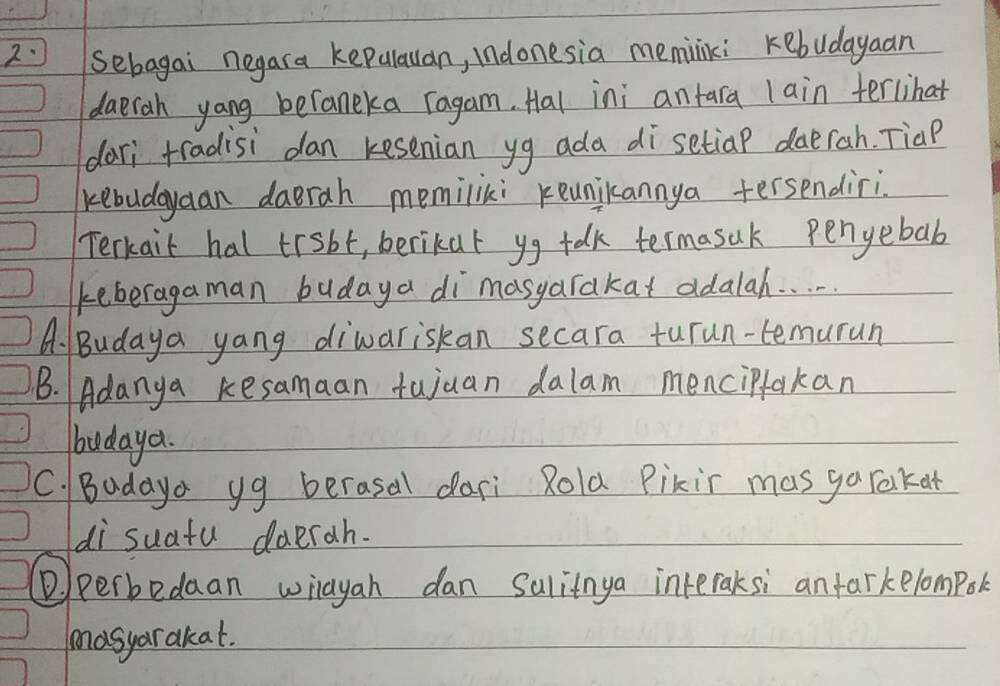 2. Sebagai negara kepulauan, indonesia memiliki kebudayaan
daerah yang beraneka ragam. Hal ini antara lain terlihat
dari tradisi dan kesenian yg ada di setiap daerah. Tiap
kebudayaan daerah memiliki keunikannya tersendiri.
Terkait hal trsbt, berikut yg tdk termasuk Penyebab
keberagaman budaya di masyarakat adalah.....
A. Budaya yang diwariskan secara turun-temurun
B. Adanya kesamaan tujuan dalam menciptakan
budaya.
C. Budaya yg berasal dari Pola Pikir masyarakat
di suatu daerah.
D. Perbedaan wilayah dan Sulitnya interaksi antarkelompok
masyarakat.